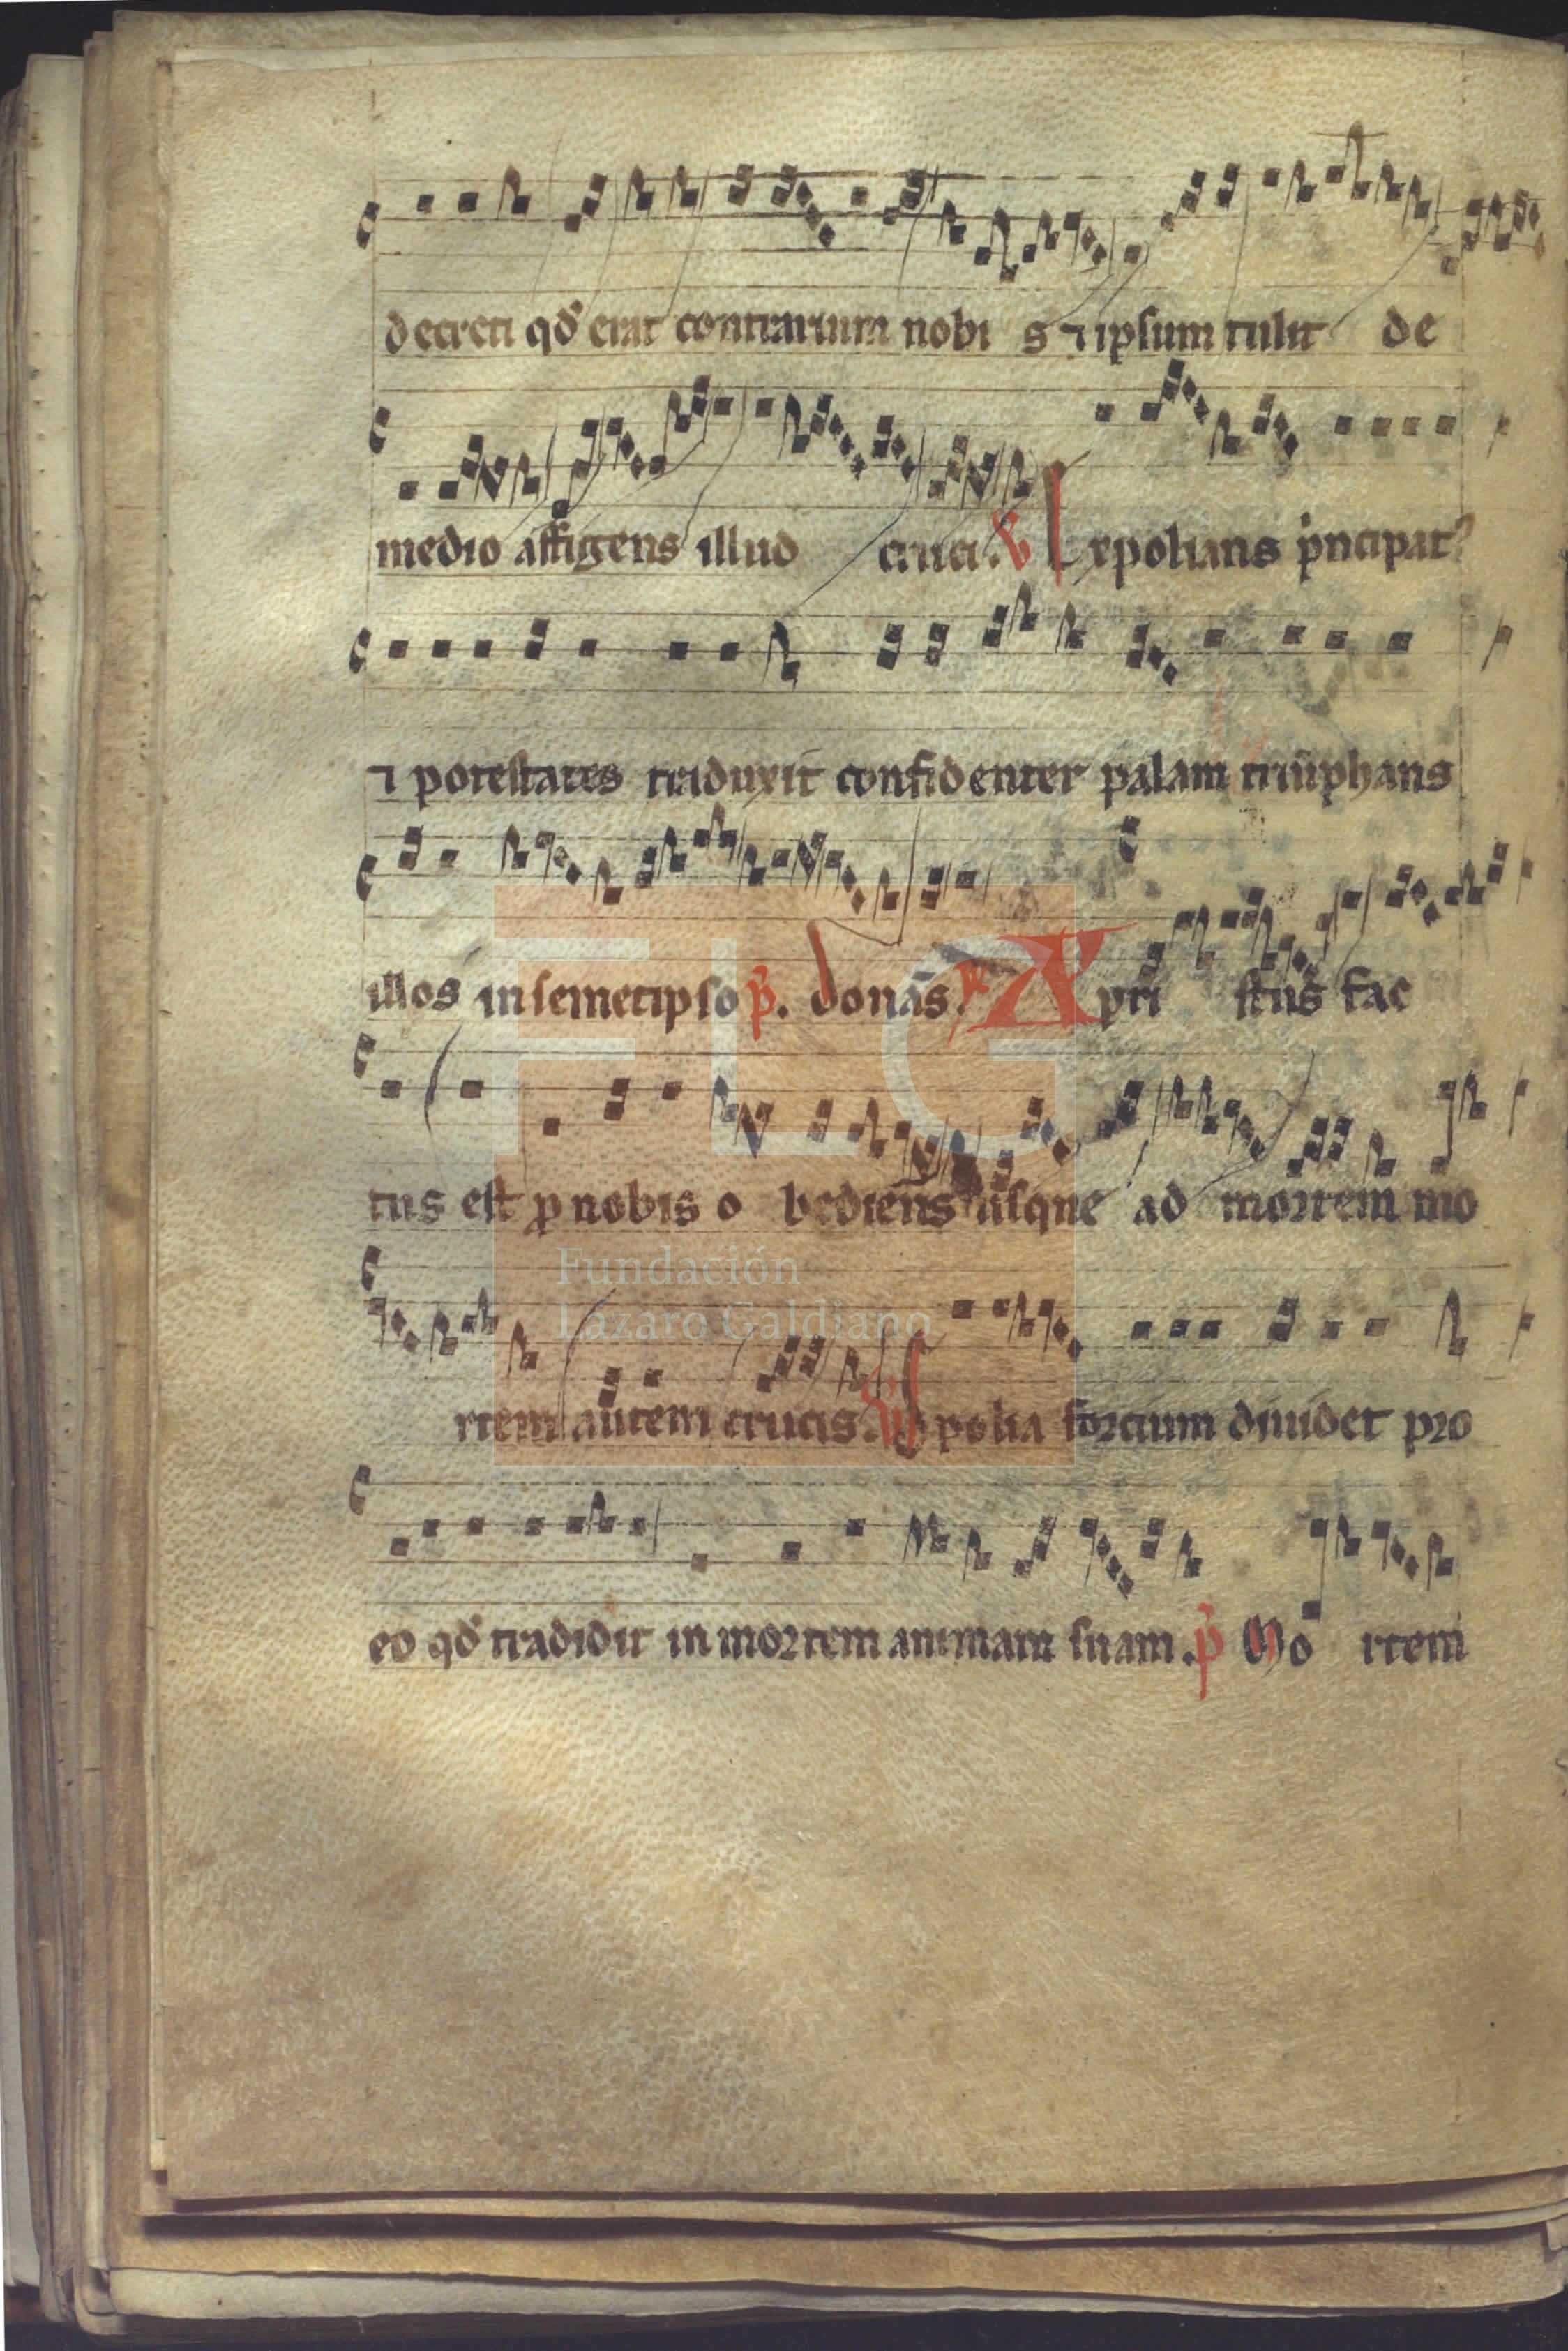 decreti qđ erat contrarium nobi s ⁊ ipsum tulit de
medio affigens illud cruci. V Expolians p̍ncipatꝰ
⁊ potestates traduxit confidenter palam triūphans
illos in semetipso p̍. donās. R Xpri stus fac
tus est ꝓ nobis o bediens usque ad mortem mo
rtem autem crucis. V Spolia forcium diuidet pro
eo qđ tradidit in mortem animam suam. p̍ Mo rtem
FLG
Fundación
Lázaro Galdiano